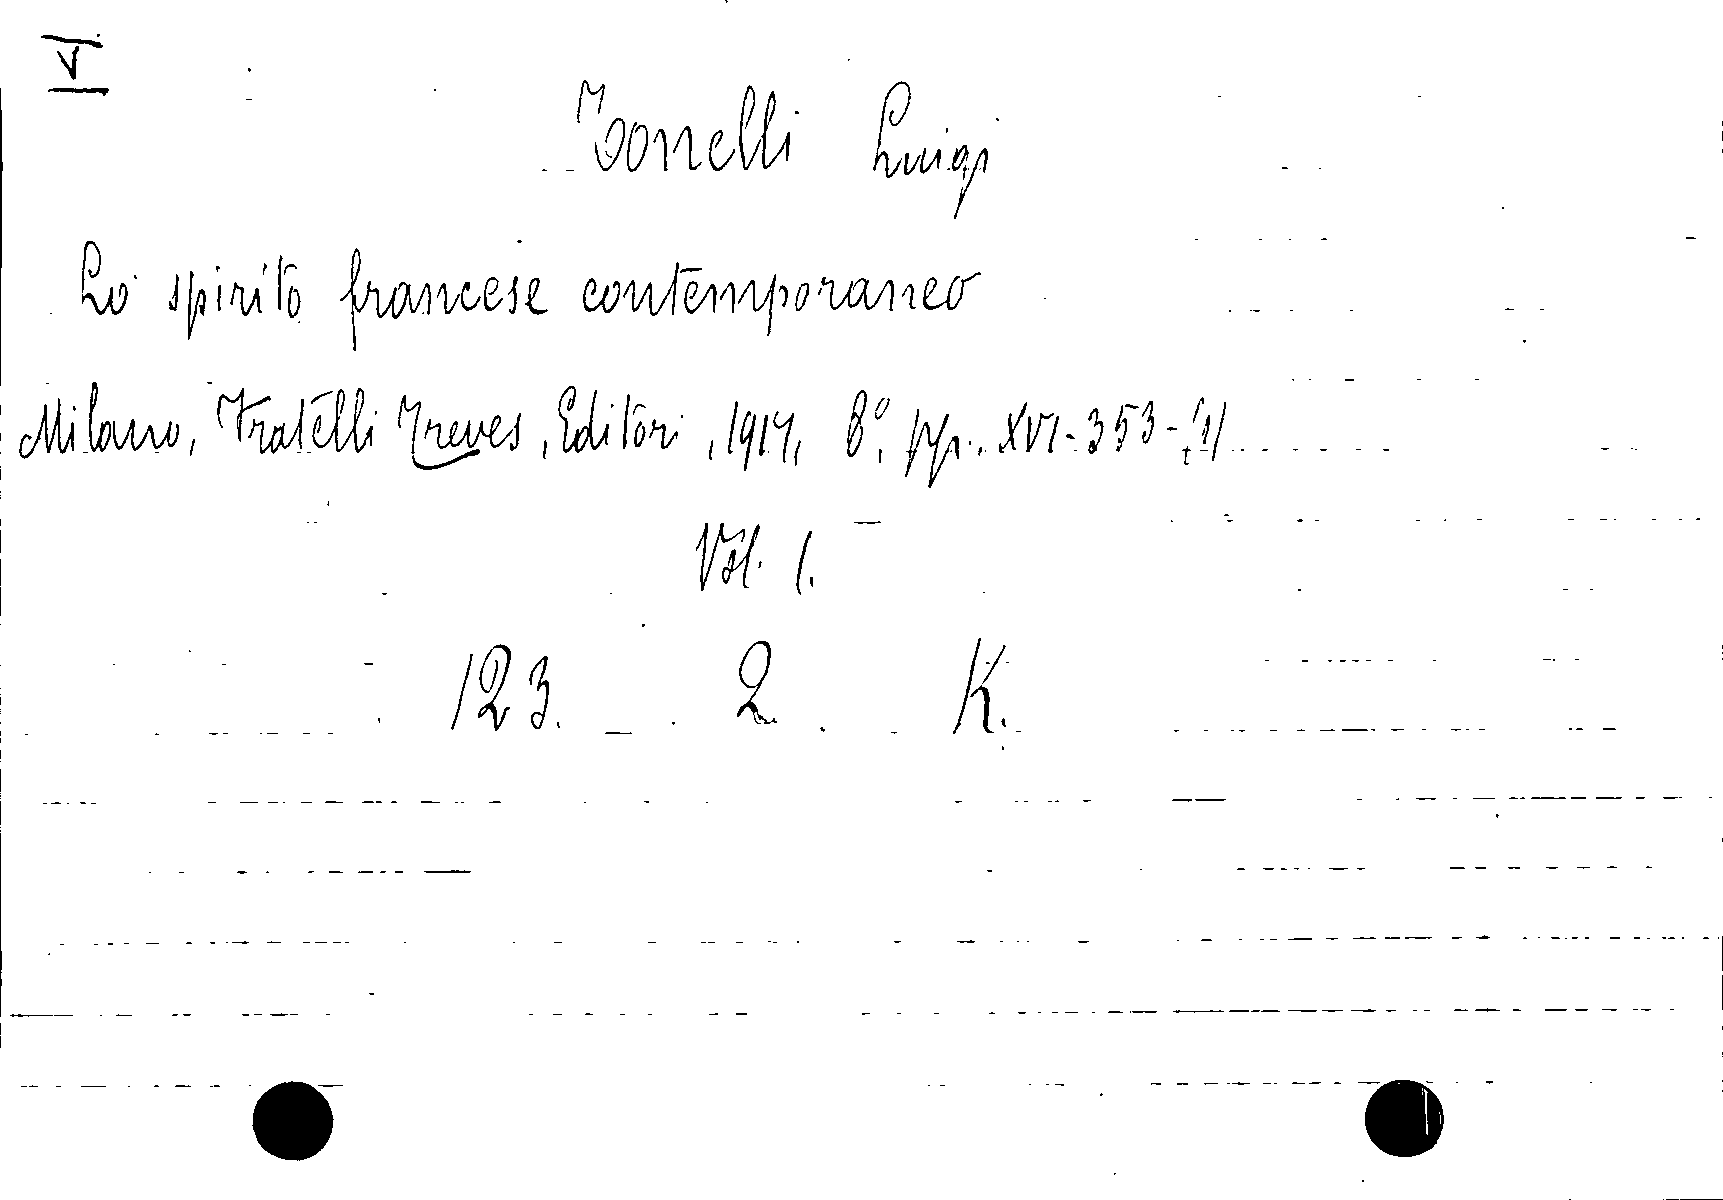 V
Tonelli Luigi
Lo spirito francese contemporaneo
Milano, Fratelli Treves, Editori, 1917, 8°, pp. XVI-353-(1)
Vol. 1.
123. 2. K.